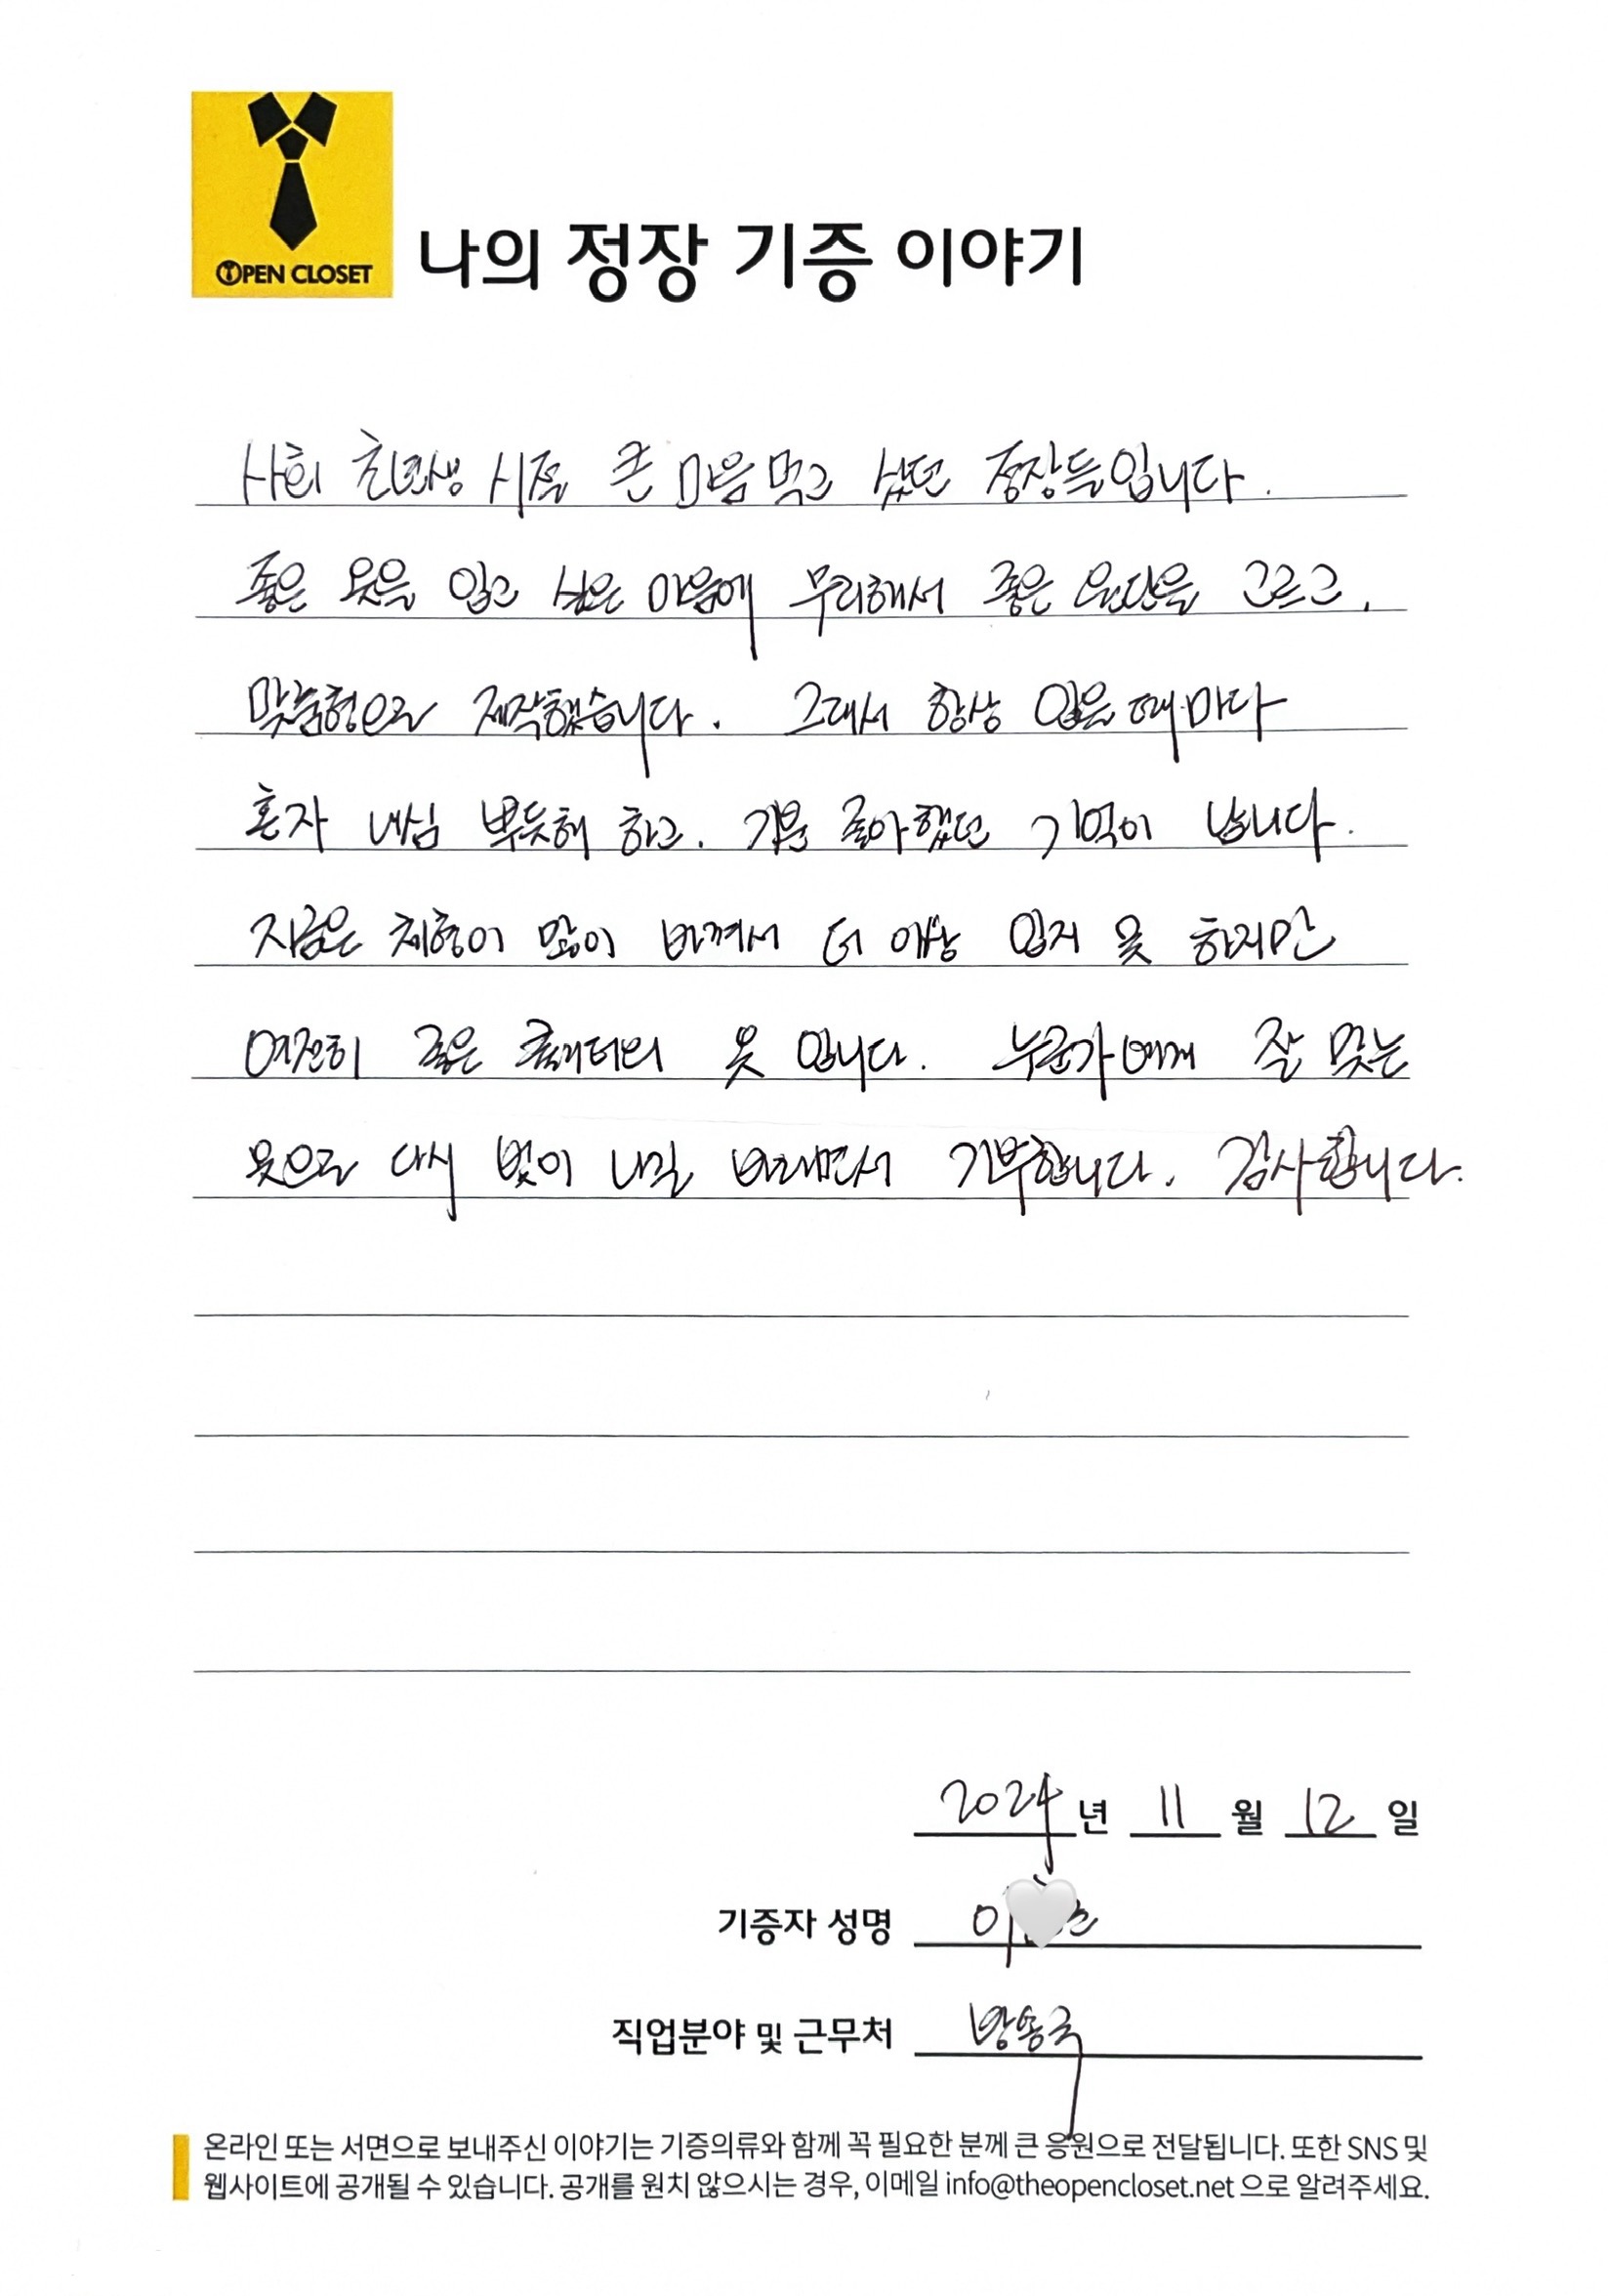 OPEN CLOSET
나의 정장 기증 이야기
사회 초년생 시절 큰 마음먹고 샀던 정장들입니다.
좋은 옷을 입고 싶은 마음에 무리해서 좋은 원단을 고르고,
맞춤형으로 제작했습니다. 그래서 항상 입을 때마다
혼자 내심 뿌듯해 하고, 기분 좋아했던 기억이 납니다.
지금은 체형이 많이 바껴서 더 이상 입지 못 하지만
여전히 좋은 퀄리티의 옷 입니다. 누군가에게 잘 맞는
옷으로 다시 빛이 나길 바래면서 기부합니다. 감사합니다.
2024년 11월 12일
기증자 성명 이
직업분야 및 근무처 방송국
온라인 또는 서면으로 보내주신 이야기는 기증의류와 함께 꼭 필요한 분께 큰 응원으로 전달됩니다. 또한 SNS 및
웹사이트에 공개될 수 있습니다. 공개를 원치 않으시는 경우, 이메일 info@theopencloset.net 으로 알려주세요.